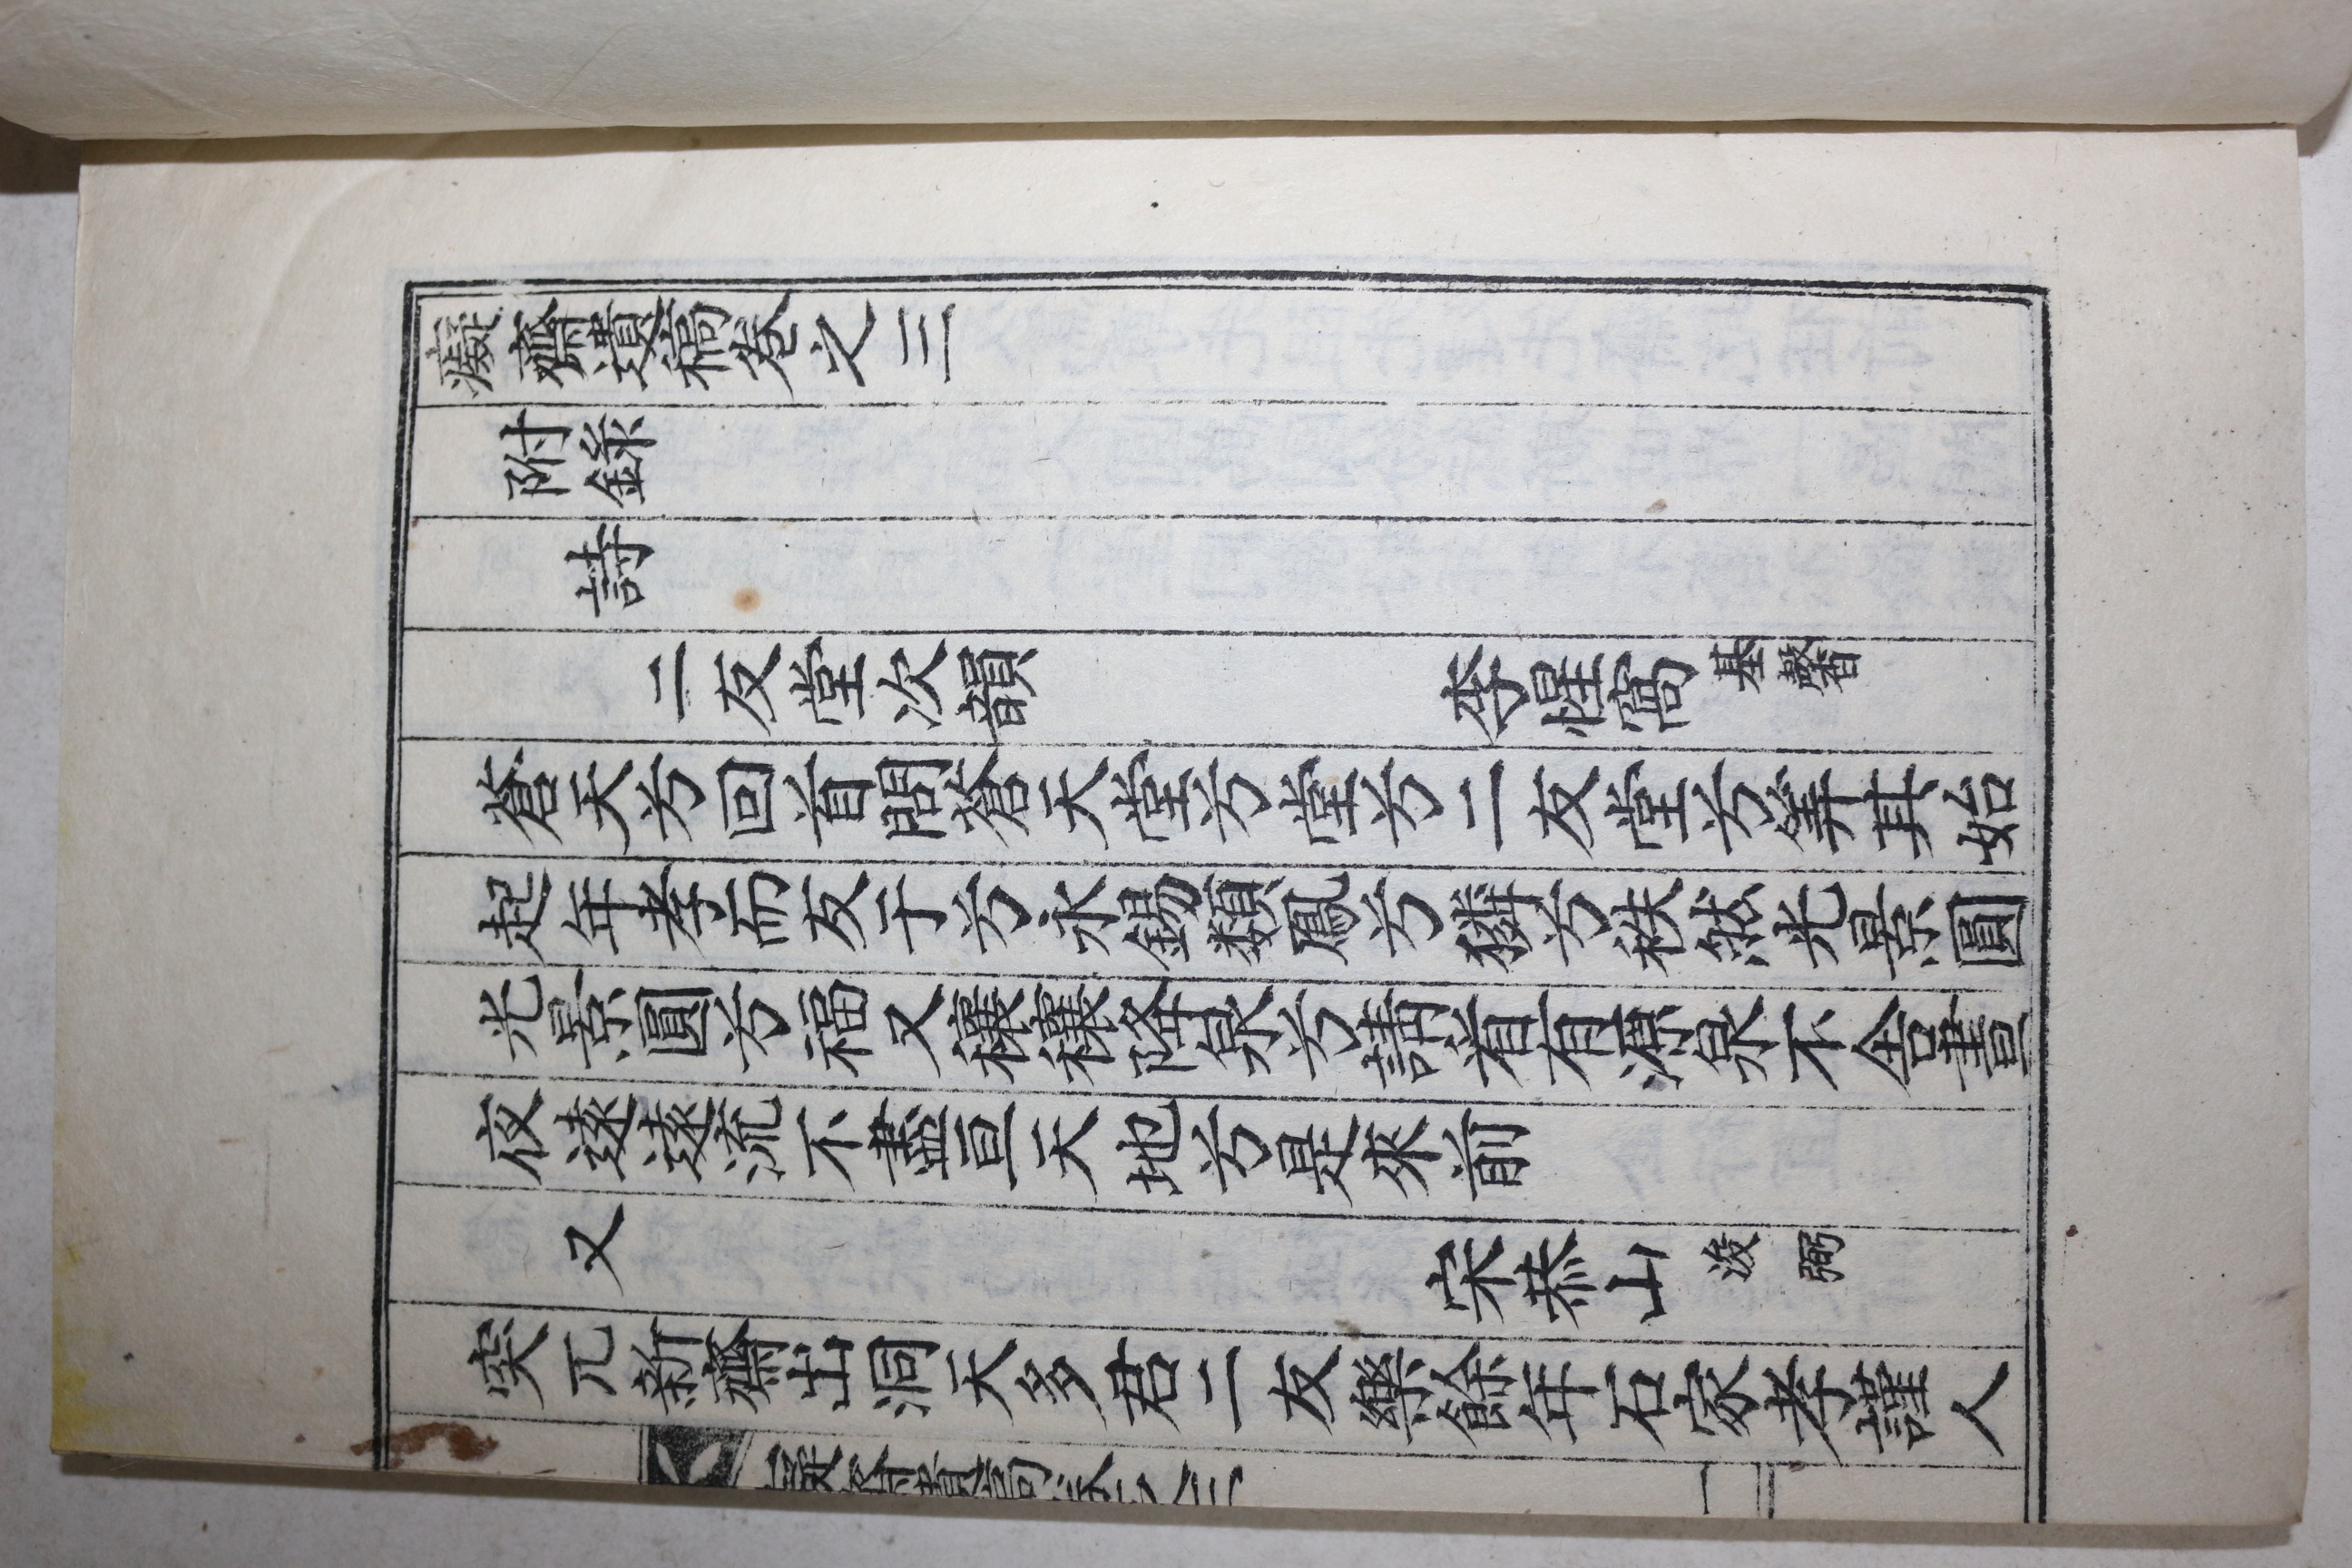 癡齋遺稿卷之三
附錄
詩
二友堂次韻 李惺窩基馨
蒼天兮回首問蒼天堂兮堂兮二友堂兮肇其始
起年孝而友于兮永錫類胤兮繼兮秩然光景圓
光景圓兮福又穰穰降泉兮請看有源泉不舍晝
夜逶逶流不盡亘天地兮是來前
又 宋恭山浚弼
突兀新齋出洞天多君二友樂餘年石家孝謹人
癡齋遺稿卷之三 一